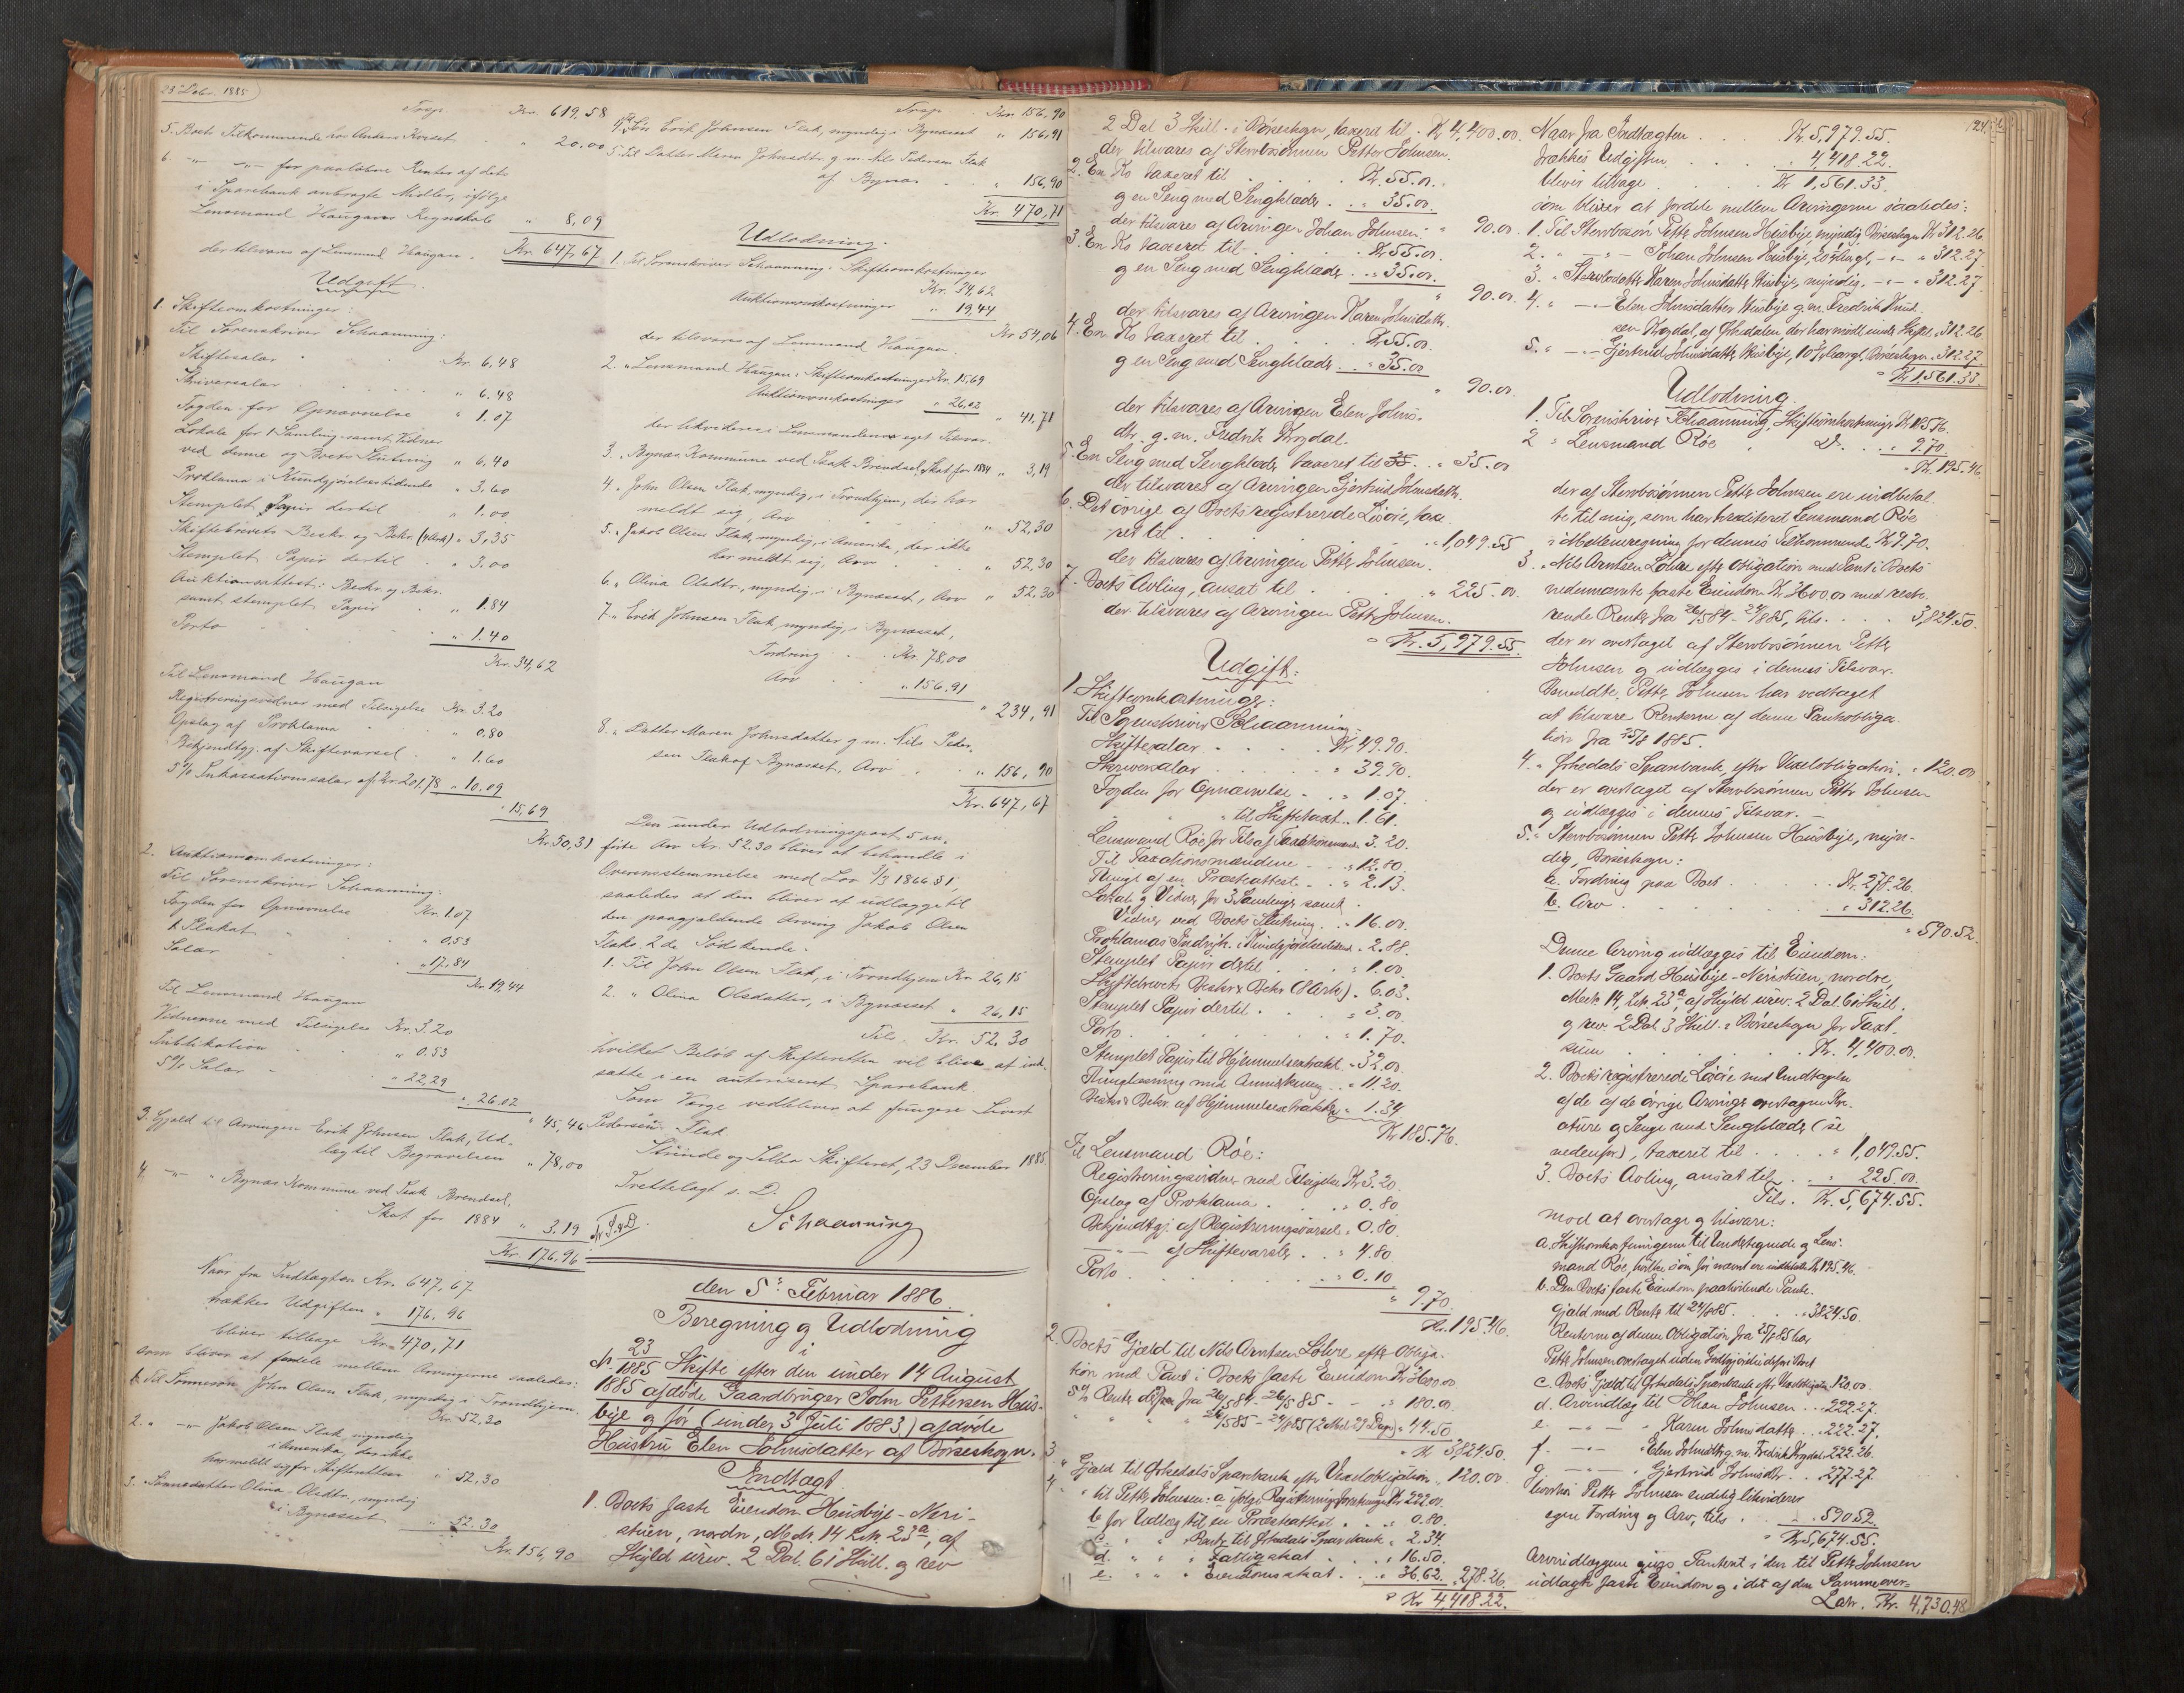 23 Decbr. 1885
Trsp. Kr. 619,58
5. Boets Tilkommende hos Anders Kvæset . " 20.00
6. —"— —"— for paaløbne Renter af det
i Sparebank anbragte Midler, ifølge
Lensmand Haugans Regnskab " 8,09
der tilsvares af Lensmand Haugan. Kr. 647,67
Udgift.
1. Skifteomkostninger:
Til Sorenskriver Schaanning:
Skiftesalær . Kr. 6,48
Skriversalær . " 6.48
Fogden for Opnævnelse " 1.07
Lokale for 1 Samling samt Vidner
ved denne og Boets Slutning " 6,40
Proklama i Kundgjørelsestidende " 3,60
Stemplet Papir dertil " 1.00
Skiftebrevets Beskr. og Bekr. (4 Ark) " 3,35
Stemplet Papir dertil . " 3.00
Auktionsattest: Beskr. og Bekr.
samt stemplet Papir . " 1.84
Porto . " 1.40
Kr. 34,62
Til Lensmand Haugan
Registreringsvidner med Tilsigelse Kr. 3.20
Opslag af Proklama " 0,80
Bekjendtgj. af Skiftevarsel . " 1.60
5% Inkassationssalær af Kr. 201.78 " 10.09
" 15,69
Kr. 50,31
2. Auktionsomkostninger:
Til Sorenskriver Schaanning:
Fogden for Opnævnelse Kr. 1.07
1 Plakat . " 0,53
Salær . " 17,84
Kr. 19,44
Til Lensmand Haugan
Vidnerne med Tilsigelse Kr. 3.20
Publikation . " 0.53
5% Salær . " 22,29
" 26.02
" 45,46
3. Gjæld til Arvingen Erik Johnsen Flak, Ud-
læg til Begravelsen " 78,00
4. —"— " Bynæs Kommune ved Isak Brendsel,
Skat for 1884 " 3.19
Kr. 176.96
Naar fra Indtægten Kr. 647,67
trækkes Udgiften " 176,96
bliver tilbage Kr. 470,71
som bliver at fordele mellem Arvingerne saaledes:
1. Til Sønnesøn John Olsen Flak, myndig i Trondhjem,
Kr. 52.30
2. " —"— Jakob Olsen Flak, myndig
i Amerika, der ikke
har meldt sig for Skifteretten " 52.30
3. Sønnedatter Olina Olsdtr., myndig
i Bynæsset " 52.30
Kr. 156,90
Trsp. Kr. 156,90
4. Til Søn Erik Johnsen Flak, myndig i Bynæsset " 156,91
5. Til Datter Maren Johnsdtr. g. m. Nils Pedersen Flak
af Bynæs . " 156,90
Kr. 470,71
Udlodning.
1. Til Sorenskriver Schaanning: Skifteomkostninger
Kr. 34,62
Auktionsomkostninger " 19,44
Kr. 54,06
der tilsvares af Lensmand Haugan
2. " Lensmand Haugan: Skifteomkostninger Kr. 15,69
Auktionsomkostninger " 26,02
" 41,71
der likvideres i Lensmandens eget Tilsvar.
3. " Bynæs Kommune ved Isak Brendsel, Skat for 1884 " 3,19
4. " John Olsen Flak, myndig, i Trondhjem, der har
meldt sig, Arv " 52,30
5. " Jakob Olsen Flak, myndig, i Amerika, der ikke
har meldt sig, Arv . " 52,30
6. " Olina Olsdtr., myndig, i Bynæsset, Arv " 52.30
7. " Erik Johnsen Flak, myndig, i Bynæsset,
Fordring . Kr. 78,00
Arv . " 156.91
" 234,91
8. " Datter Maren Johnsdatter g. m. Nils Peder-
sen Flak af Bynæsset, Arv . " 156,90
Kr. 647,67
Den under Udlodningspost 5 an-
førte Arv Kr. 52.30 bliver at behandle i
Overensstemmelse med Lov 3/3 1866 § 1,
saaledes at den bliver at udlægge til
den paagjældende Arving Jakob Olsen
Flaks 2de Sødskende.
1. Til John Olsen Flak, i Trondhjem Kr. 26,15
2. " Olina Olsdatter, i Bynæsset " 26,15
Tils. Kr. 52.30
hvilket Beløb af Skifteretten vil blive at ind-
sætte i en autoriseret Sparebank.
Som Værge vedbliver at fungere Sivert
Pedersen Flak.
Strinde og Selbu Skifteret, 23 December 1885
Tvettelagt s. D.
Schaanning
den 5te Februar 1886
Beregning og Udlodning
i
N. 23/1885 Skifte efter den under 14 August
1885 afdøde Gaardbruger John Pettersen Hus-
bye og før (under 3 Juli 1883) afdøde
Hustru Elen Johnsdatter af Børseskogn.
Indtægt.
1. Boets faste Eiendom Husbye-Neri-
stuen, nordre, Matr. 14 Lit. 23a, af
Skyld urev. 2 Dal. 61 Skill. og rev
2 Dal 3 Skill. i Børseskogn, taxeret til . Kr 4,400.00.
der tilsvares af Stervbosønnen Petter Johnsen.
2. En Ko taxeret til . Kr. 55.00.
og en Seng med Sengklæder . " 35.00.
" 90.00.
der tilsvares af Arvingen Johan Johnsen.
3. En Ko taxeret til . Kr. 55.00.
og en Seng med Sengklæder . " 35.00.
" 90.00.
der tilsvares af Arvingen Karen Johnsdatter.
4. En Ko taxeret til . Kr. 55.00.
og en Seng med Sengklæder . " 35.00
" 90.00.
der tilsvares af Arvingen Elen Johns-
dtr. g. m. Fredrik Krogdal.
5. En Seng med Sengklæder taxeret til 35. " 35.00
der tilsvares af Arvingen Gjertrud Johnsdatter.
6. Det øvrige af Boets registrerede Løsøre, taxe-
ret til . " 1,049.55
der tilsvares af Arvingen Petter Johnsen.
7. Boets Avling, ansat til . " 225.00.
der tilsvares af Arvingen Petter Johnsen.
Kr. 5,979.55.
Udgift:
1. Skifteomkostninger:
Til Sorenskriver Schaanning:
Skiftesalær . Kr 49.90.
Skriversalær . " 39.90.
Fogden for Opnævnelse . " 1.07.
" til Skiftetaxt " 1.61.
Lensmand Røe for Tils. af Taxationsmænd " 3.20.
Til Taxationsmændene . " 12.80.
Thingl. af en Præsteattest . " 2.13.
Lokal og Vidner for 3 Samlinger samt
Vidner ved Boets Slutning . " 16.00.
Proklamas Indryk. i Kundgjørelsestidende " 2.88.
Stemplet Papir dertil . " 1.00.
Skiftebrevets Beskr & Bekr (8 Ark) . " 6.03.
Stemplet Papir dertil . " 3.00.
Porto . " 1.70.
Stemplet Papir til Hjemmelsextrakt " 32.00.
Thinglæsning med Anmerkning . " 11.20.
Beskr & Bekr. af Hjemmelsextrakt " 1.34
Kr 185.76.
Til Lensmand Røe:
Registreringsvidner med Tilsigelse Kr 3.20.
Opslag af Proklama . " 0.80
Bekjendtgj. af Registreringsvarsel " 0.80.
—"— af Skiftevarsler . " 4.80
Porto . " 0.10
" 9.70
Kr. 195.46.
2. Boets Gjæld til Nils Arntsen Løhre efter Obliga-
tion med Pant i Boets faste Eiendom Kr 3600.00
5% Rente deraf fra 26/5 84 - 26/5 85 " 180.00.
" " " 26/5 85 - 24/8 85 (2 Mdr. 29 Dage) " 44.50
Kr 3,824.50.
3. " Gjæld til Ørkedals Sparebank efter Vexelobligation . 120.00
4. " til Petter Johnsen: a ifølge Registreringsforretninge Kr 222.00.
b for Udlæg til en Præsteattest . " 0.80.
c. " " Rente til Ørkedals Sparebank " 2.34.
d. " " Fattigskat . " 16.50.
e. " " Eiendomsskat . " 36.62. " 278.26.
Kr 4,418.22.
124
Naar fra Indtægten . Kr. 5,979.55.
trækkes Udgiften . " 4,418.22.
bliver tilbage . Kr 1,561.33.
som bliver at fordele mellem Arvingerne saaledes:
1. Til Stervbosøn Petter Johnsen Husbye, myndig, Børseskogn Kr 312.26
2. " —"— Johan Johnsen Husbye, 20½ Aar gl. —"— " 312.27
3. " Stervbodatter Karen Johnsdatter Husbye, myndig, —"— " 312.27.
4. " —"— Elen Johnsdatter Husbye g. m. Fredrik Knud-
sen Krogdal, af Ørkedalen, der har mødt under Skiftet " 312.26
5. " —"— Gjertrud Johnsdatter Husbye, 10¾ Aar gl. Børseskogn " 312.27
Kr 1561.33
Udlodning.
1. Til Sorenskriver Schaanning, Skifteomkostninger Kr 185.76.
2 " Lensmand Røe Do . " 9.70.
Kr. 195.46.
der af Stervbosønnen Petter Johnsen ere indbetal-
te til mig, som har krediteret Lensmand Røe
i Mellemregning for dennes Tilkommende Kr 9.70.
3. " Nils Arntsen Løhre efter Obligation med Pant i Boets
nedennævnte faste Eiendom Kr. 3600.00 med reste-
rende Renter fra 26/5 84 - 24/8 85, tils. . 3,824.50.
der er overtaget af Stervbosønnen Petter
Johnsen og udlægges i dennes Tilsvar.
Bemeldte Petter Johnsen har vedtaget
at tilsvare Renterne af denne Pantobliga-
tion fra 25/8 1885.
4. " Ørkedals Sparebank, efter Vexelobligation. " 120.00
der er overtaget af Stervbosønnen Petter Johnsen
og udlægges i dennes Tilsvar.
5. " Stervbosønnen Petter Johnsen Husbye, myn-
dig, Børseskogn:
a. Fordring paa Boet . Kr. 278.26.
b. Arv . " 312.26.
" 590.52.
Denne Arving udlægges til Eiendom:
1. Boets Gaard Husbye-Neristuen, nordre,
Matr 14, Litr. 23a, af Skyld urev. 2 Dal. 61 Skill.
og rev. 2 Dal 3 Skill. i Børseskogn for Taxt-
sum . Kr. 4,400.00.
2. Boets registrerede Løsøre med Undtagelse
af de af de øvrige Arvinger overtagne Kre-
aturer og Senge med Sengklæder (se
nedenfor), taxeret til . " 1,049.55.
3. Boets Avling, ansat til . " 225.00.
Tils. Kr. 5,674.55.
mod at overtage og tilsvare:
a. Skifteomkostningerne til Undertegnede og Lens-
mand Røe, hvilke som før nævnt ere indbetalte Kr 195.46.
b. Den Boets faste Eiendom paahvilende Pante-
gjæld med Renter til 24/8 85. . " 3824.50.
Renterne af denne Obligation fra 25/8 85 har
Petter Johnsen overtaget uden Godtgjørelse derfor i Boet
c. Boets Gjæld til Ørkedals Sparebank efter Vexelobligation 120.00.
d. Arvudlæg til Johan Johnsen . 222.27.
e. —"— " Karen Johnsdatter . 222.27.
f. —"— " Elen Johnsdtr g. m. Fredrik Krogdal 222.26.
g. —"— " Gjertrud Johnsdtr. . 277.27.
hvorhos Petter Johnsen endelig likviderer
egen Fordring og Arv, tils. . 590.52.
Kr 5,674.55.
Arvudlæggene gives Panteret i den til Petter Johnsen
udlagte faste Eiendom og i det af den Samme over-
Latr. Kr. 4,730.48